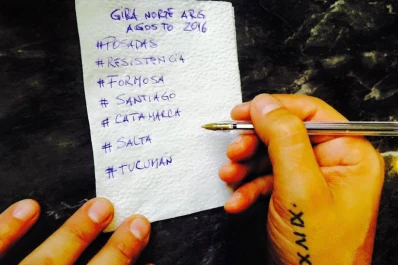 GIRA NORTE ARG
AGOSTO 2016
#POSADAS
#RESISTENCIA
#FORMOSA
# SANTIAGO
# CATAMARCA
# SALTA
# TUCUMAN